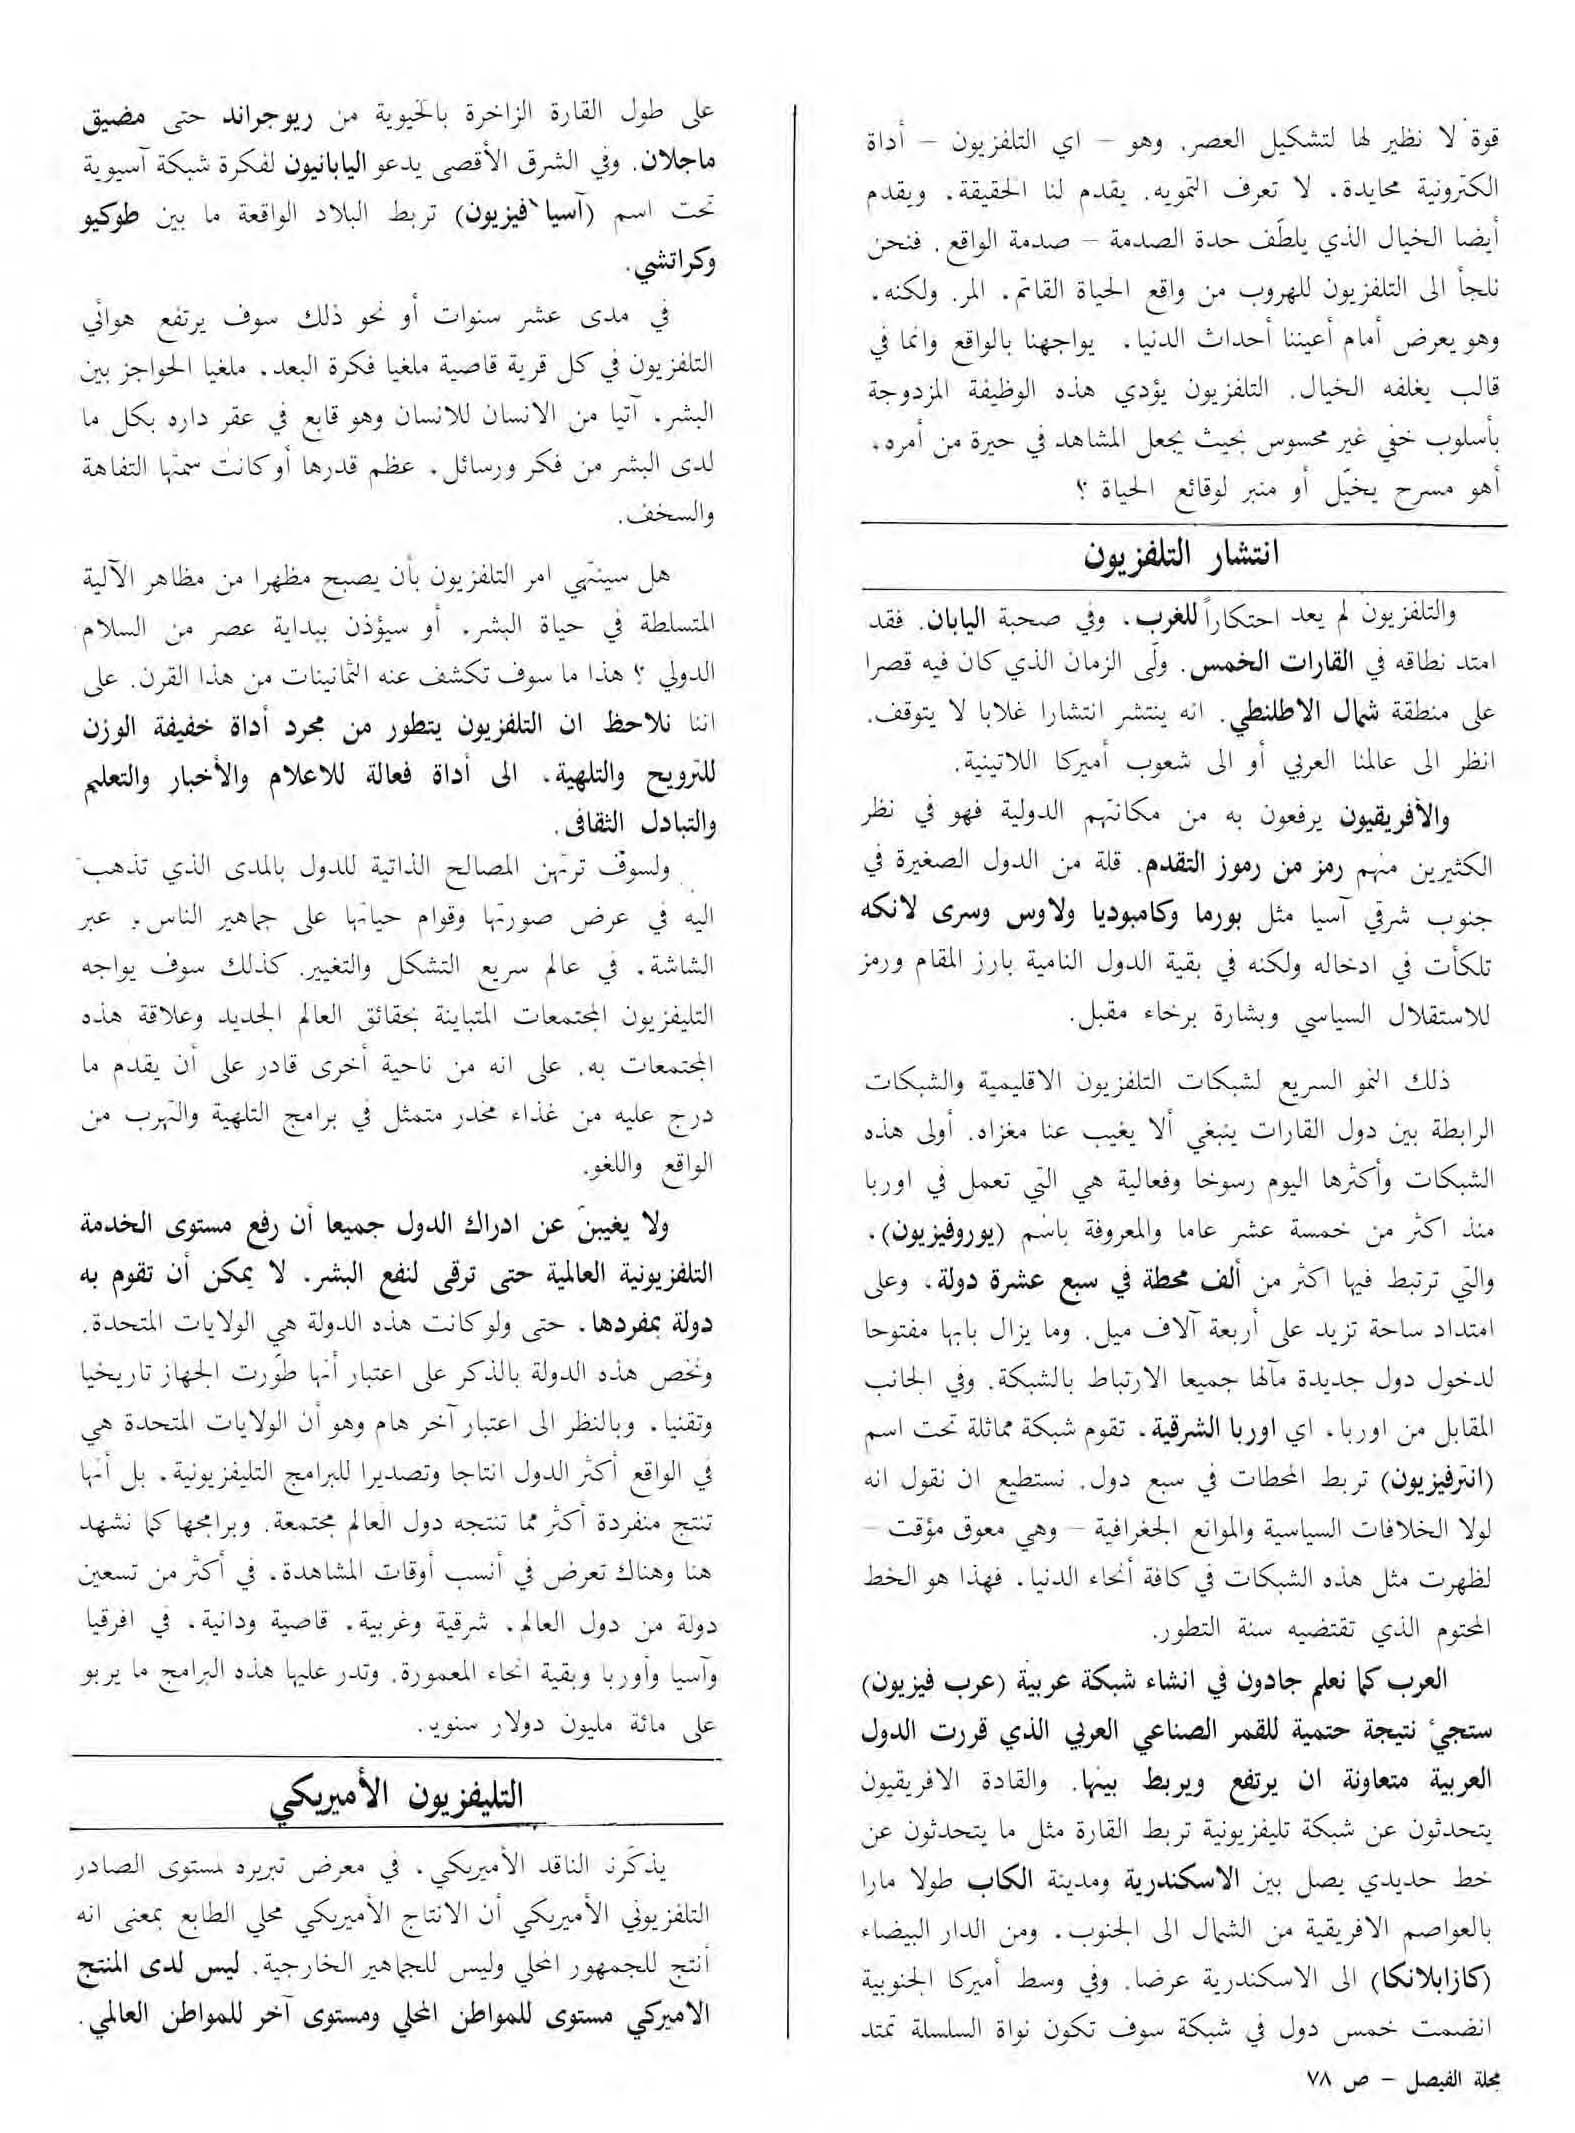 قوة لا نظير لها لتشكيل العصر. وهو – اي التلفزيون – أداة
الكترونية محايدة، لا تعرف التمويه. يقدم لنا الحقيقة، ويقدم
أيضا الخيال الذي يلطّف حدة الصدمة – صدمة الواقع. فنحن
نلجأ الى التلفزيون للهروب من واقع الحياة القاتم، المر. ولكنه،
وهو يعرض أمام أعيننا أحداث الدنيا، يواجهنا بالواقع وانما في
قالب يغلفه الخيال. التلفزيون يؤدي هذه الوظيفة المزدوجة
بأسلوب خفي غير محسوس بحيث يجعل المشاهد في حيرة من أمره،
أهو مسرح يخيّل أو منبر لوقائع الحياة ؟
انتشار التلفزيون
والتلفزيون لم يعد احتكاراً للغرب، وفي صحبة اليابان. فقد
امتد نطاقه في القارات الخمس. ولّى الزمان الذي كان فيه قصرا
على منطقة شمال الاطلنطي. انه ينتشر انتشارا غلابا لا يتوقف.
انظر الى عالمنا العربي أو الى شعوب أميركا اللاتينية.
والأفريقيون يرفعون به من مكانتهم الدولية فهو في نظر
الكثيرين منهم رمز من رموز التقدم. قلة من الدول الصغيرة في
جنوب شرقي آسيا مثل بورما وكامبوديا ولاوس وسرى لانكه
تلكأت في ادخاله ولكنه في بقية الدول النامية بارز المقام ورمز
للاستقلال السياسي وبشارة برخاء مقبل.
ذلك النمو السريع لشبكات التلفزيون الاقليمية والشبكات
الرابطة بين دول القارات ينبغي ألا يغيب عنا مغزاه. أولى هذه
الشبكات وأكثرها اليوم رسوخا وفعالية هي التي تعمل في اوربا
منذ اكثر من خمسة عشر عاما والمعروفة باسم (يوروفيزيون)،
والتي ترتبط فيها اكثر من ألف محطة في سبع عشرة دولة، وعلى
امتداد ساحة تزيد على أربعة آلاف ميل. وما يزال بابها مفتوحا
لدخول دول جديدة مآلها جميعا الارتباط بالشبكة. وفي الجانب
المقابل من اوربا، اي اوربا الشرقية، تقوم شبكة مماثلة تحت اسم
(انترفيزيون) تربط المحطات في سبع دول. نستطيع ان نقول انه
لولا الخلافات السياسية والموانع الجغرافية – وهي معوق مؤقت –
لظهرت مثل هذه الشبكات في كافة أنحاء الدنيا، فهذا هو الخط
المحتوم الذي تقتضيه سنة التطور.
العرب كما نعلم جادون في انشاء شبكة عربية (عرب فيزيون)
ستجئ نتيجة حتمية للقمر الصناعي العربي الذي قررت الدول
العربية متعاونة ان يرتفع ويربط بينها. والقادة الافريقيون
يتحدثون عن شبكة تليفزيونية تربط القارة مثل ما يتحدثون عن
خط حديدي يصل بين الاسكندرية ومدينة الكاب طولا مارا
بالعواصم الافريقية من الشمال الى الجنوب، ومن الدار البيضاء
(كازابلانكا) الى الاسكندرية عرضا. وفي وسط أميركا الجنوبية
انضمت خمس دول في شبكة سوف تكون نواة السلسلة تمتد
على طول القارة الزاخرة بالحيوية من ريوجراند حتى مضيق
ماجلان. وفي الشرق الأقصى يدعو اليابانيون لفكرة شبكة آسيوية
تحت اسم (آسيا فيزيون) تربط البلاد الواقعة ما بين طوكيو
وكراتشي.
في مدى عشر سنوات أو نحو ذلك سوف يرتفع هوائي
التلفزيون في كل قرية قاصية ملغيا فكرة البعد، ملغيا الحواجز بين
البشر، آتيا من الانسان للانسان وهو قابع في عقر داره بكل ما
لدى البشر من فكر ورسائل، عظم قدرها أو كانت سمتها التفاهة
والسخف.
هل سينتهي امر التلفزيون بأن يصبح مظهرا من مظاهر الآلية
المتسلطة في حياة البشر، أو سيؤذن ببداية عصر من السلام
الدولي ؟ هذا ما سوف تكشف عنه الثمانينات من هذا القرن. على
اننا نلاحظ ان التلفزيون يتطور من مجرد أداة خفيفة الوزن
للترويح والتلهية، الى أداة فعالة للاعلام والأخبار والتعليم
والتبادل الثقافى.
ولسوف ترتهن المصالح الذاتية للدول بالمدى الذي تذهب
اليه في عرض صورتها وقوام حياتها على جماهير الناس، عبر
الشاشة، في عالم سريع التشكل والتغيير. كذلك سوف يواجه
التليفزيون المجتمعات المتباينة بحقائق العالم الجديد وعلاقة هذه
المجتمعات به. على انه من ناحية أخرى قادر على أن يقدم ما
درج عليه من غذاء مخدر متمثل في برامج التلهية والتهرب من
الواقع واللغو.
ولا يغيبنّ عن ادراك الدول جميعا أن رفع مستوى الخدمة
التلفزيونية العالمية حتى ترقى لنفع البشر، لا يمكن أن تقوم به
دولة بمفردها، حتى ولو كانت هذه الدولة هي الولايات المتحدة.
ونخص هذه الدولة بالذكر على اعتبار أنها طوّرت الجهاز تاريخيا
وتقنيا، وبالنظر الى اعتبار آخر هام وهو أن الولايات المتحدة هي
في الواقع أكثر الدول انتاجا وتصديرا للبرامج التليفزيونية، بل أنها
تنتج منفردة أكثر مما تنتجه دول العالم مجتمعة. وبرامجها كما نشهد
هنا وهناك تعرض في أنسب أوقات المشاهدة، في أكثر من تسعين
دولة من دول العالم، شرقية وغربية، قاصية ودانية، في افرقيا
وآسيا وأوربا وبقية انحاء المعمورة. وتدر عليها هذه البرامج ما يربو
على مائة مليون دولار سنويا.
التليفزيون الأميريكي
يذكّرنا الناقد الأميريكي، في معرض تبريره لمستوى الصادر
التلفزيوني الأميريكي أن الانتاج الأميريكي محلي الطابع بمعنى انه
أنتج للجمهور المحلي وليس للجماهير الخارجية. ليس لدى المنتج
الاميركي مستوى للمواطن المحلي ومستوى آخر للمواطن العالمي.
مجلة الفيصل – ص ٧٨